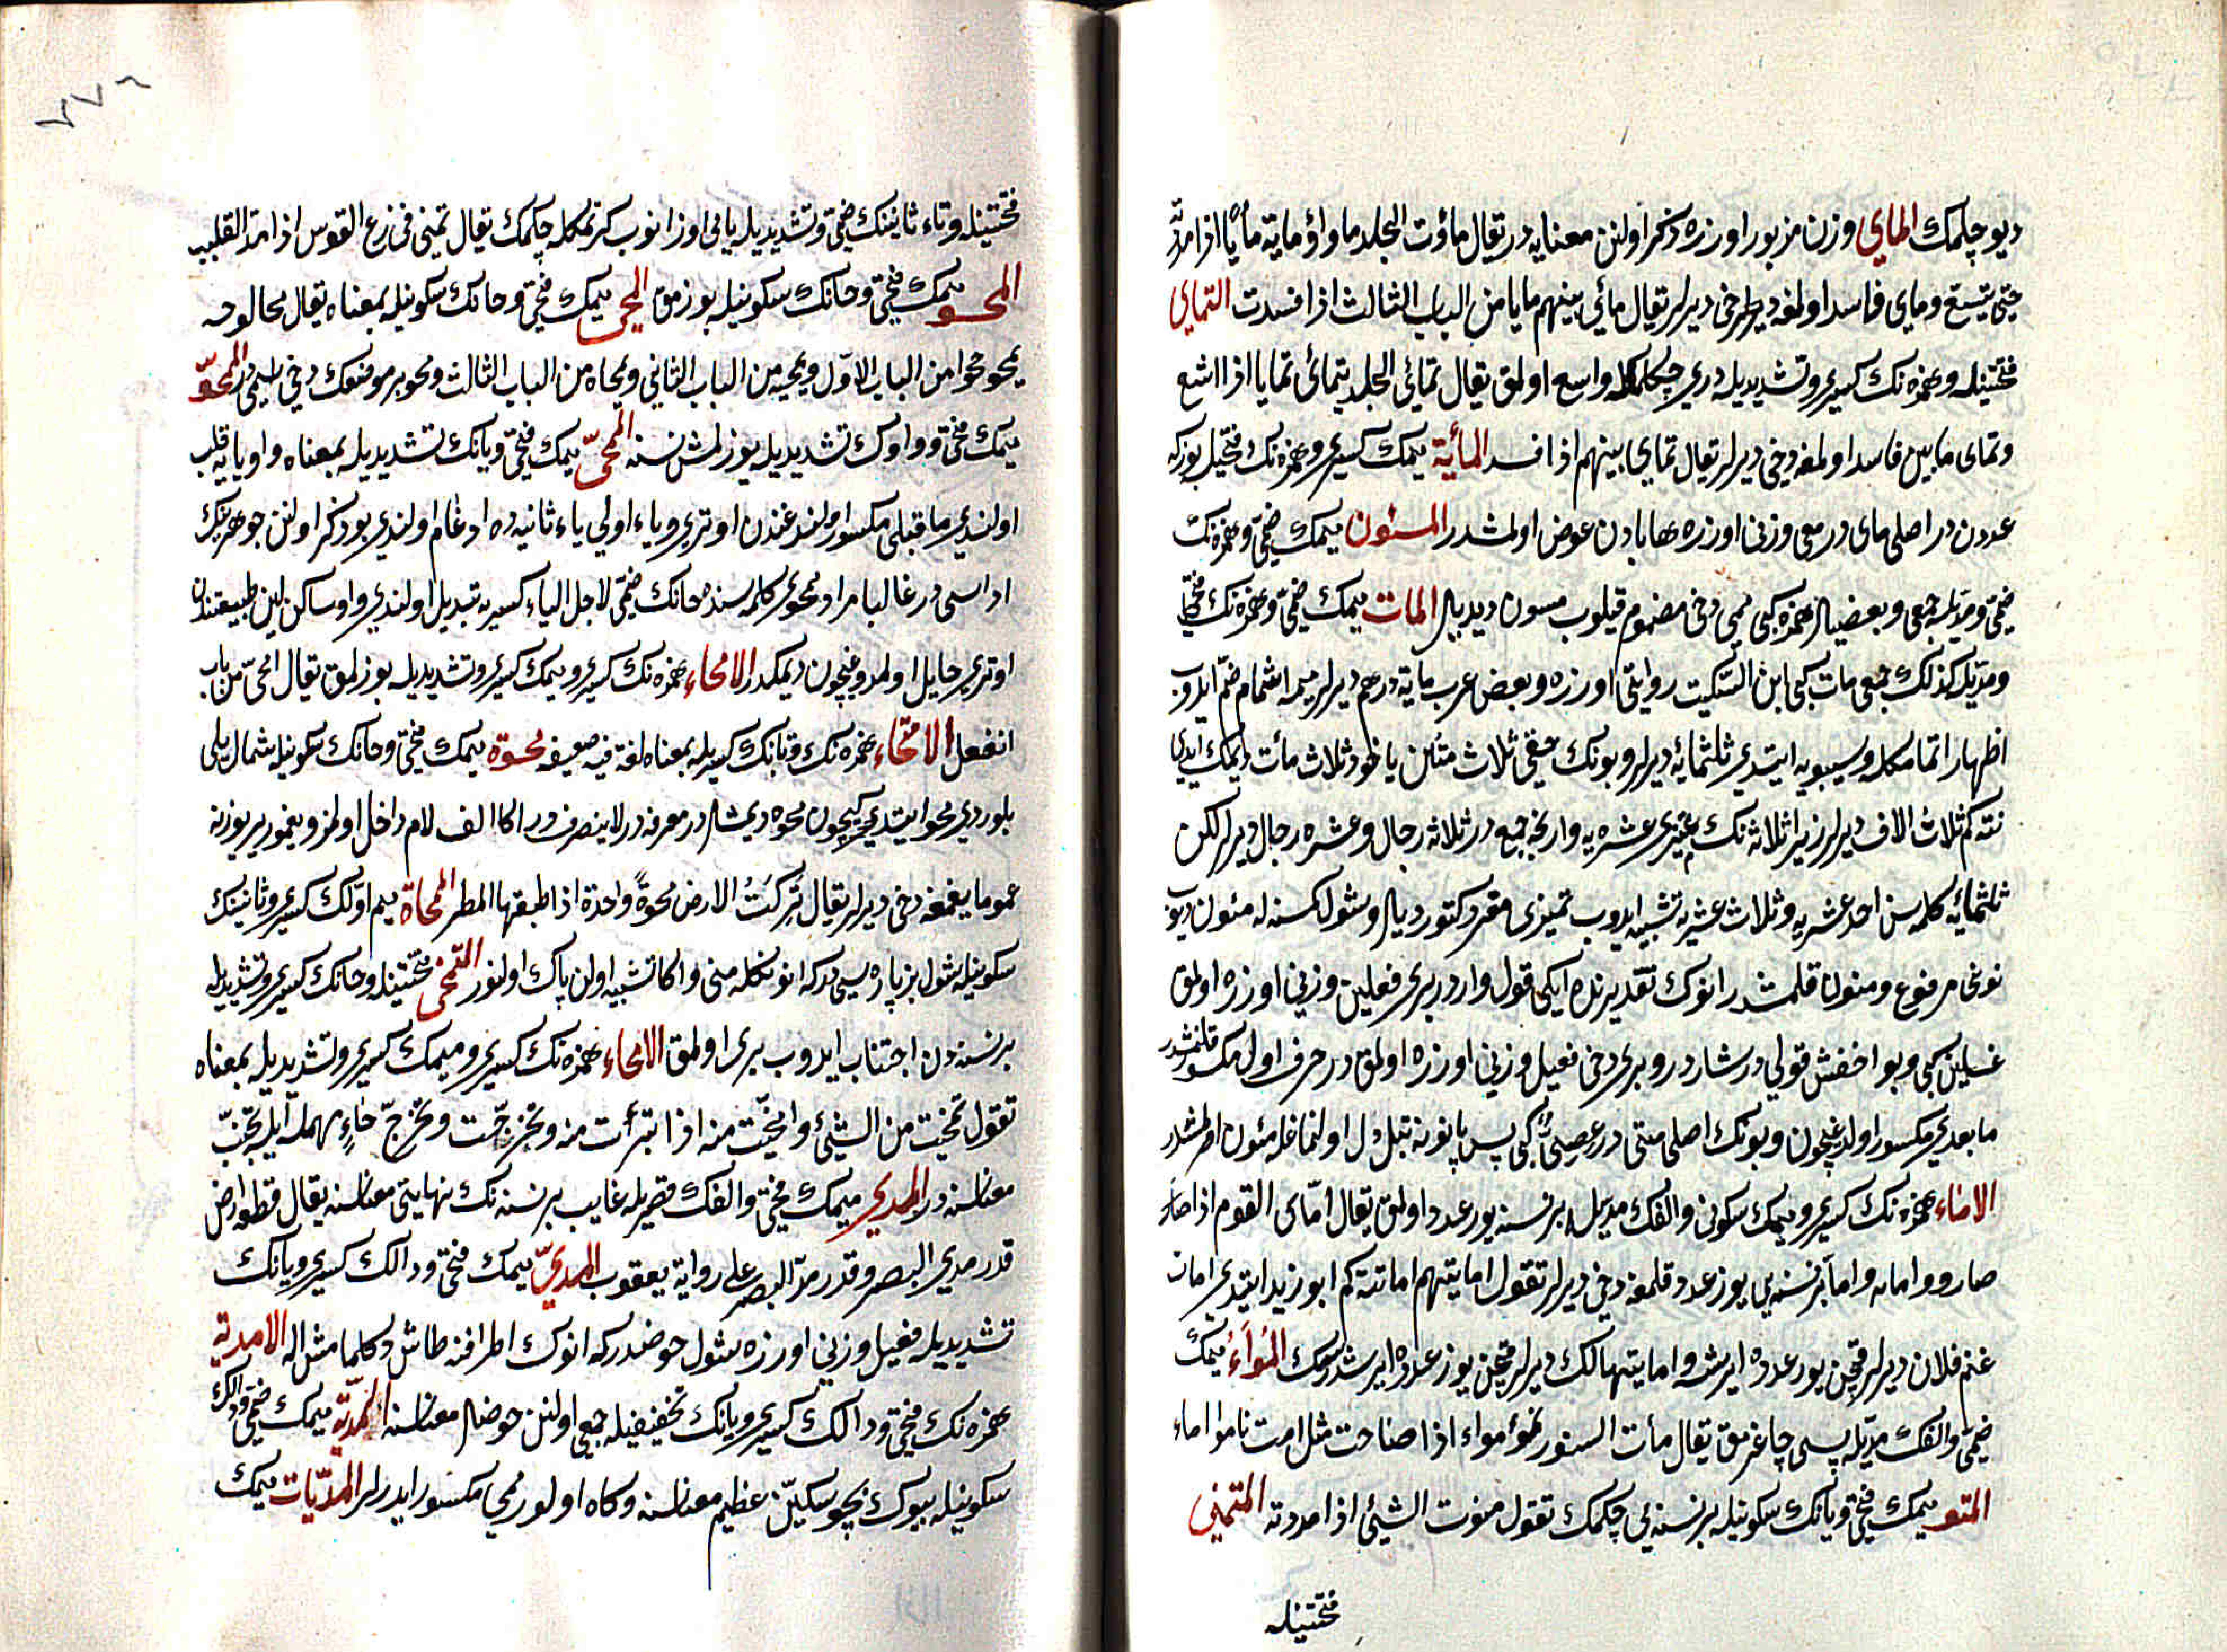 ديو چكمك المأي وزن مزبور اوزره ذكر اولنن معنايه در يقال مأوت الجلد مأوا ومأيته مأيا اذا مددته
حتى يتسع ومأي فاسد اولمغه دخى ديرلر يقال مأى بينهم مأيا من الباب الثالث اذا فسدت التمأي
فتحتينله وهمزه نك كسرى وتشديديله درى چكلمكله واسع اولمق يقال تمأى الجلد يتمأى تمأيا اذا اتسع
وتمأى مابين فاسد اولمغه دخى ديرلر يقال تمأى بينهم اذا فسد المأية ميمك كسرى وهمزه نك فتحيله يوزكه
عدددن در اصلى مأى در معى وزنى اوزره ها يادن عوض اولمشدر المئون ميمك ضمى وهمزه نك
ضمى ومديله جمعى وبعضيلر همزه كبى ميمى دخى مضموم قيلوب مئون ديديلر المات ميمك ضمى وهمزه نك فتحى
ومديله كذلك جمعى مات كبى ابن السكيت روايتى اوزره وبعض عرب ماية درهم ديرلر ميمه اشمام ضم ايدوب
اظهار اتمامكله وسيبويه ايتدى ثلثمائه ديرلر وبونك حقى ثلاث مئين ياخود ثلاث مئات ديمك ايدى
نته كم ثلاث الاف ديرلر زيرا ثلاثه نك مميزى عشره يه وارنجه جمع در ثلاثه رجال وعشره رجال ديرلر لكن
ثلثمائه كلمه سن احد عشر يه وثلاث عشر يه تشبيه ايدوب تميزى مفرد كتورديلر وشول كمسنه كه مئون ديوب
نونى مرفوع ومنون قلمشدر انوك تقديرنده ايكى قول واردر برى فعلين وزنى اوزره اولمق
غسلين كبى وبو اخفش قولى در شاردر وبرى دخى فعيل وزنى اوزره اولمق در حرف اول مكسور قلنمشدر
مابعدى مكسور اولدغيچون وبونك اصلى مئى در عصى كبى پس يا نونه تبديل اولنمغله مئون اولمشدر
الاماء همزه نك كسرى وميمك سكونى والفك مديله برنسنه يوز عدد اولمق يقال امأى القوم اذا صار
صاروا مايه واما برنسنه يى يوز عدد قلمغه دخى ديرلر تقول امايتهم اما نته كم ابو زيد ايتدى امات
غنم فلان ديرلر قچن يوز عدده ايرشه وامايتها لك ديرلر قچن يوز عدده ايرشدرسك المواء ميمك
ضمى والفك مديله پسى چاغرمق يقال مأت السنور تموء مواء اذا صاحت مثل امت تاموا اماء
المتو ميمك فتحى ويانك سكونيله برنسنه يى چكمك تقول متوت الشئ اذا مددته التمتى
فتحتينله
٢٧٦
فتحتينله وتاء ثانينك ضمى وتشديديله يايى اوزانوب كرنمكله چكمك يقال تمتى فى نزع القوس اذا مد القلب
المحو ميمك فتحى وحانك سكونيله بوزمق المحى ميمك فتحى وحانك سكونيله بمعناه يقال محا لوحه
يمحو محوا من الباب الاول ويمحيه من الباب الثانى ويمحاه من الباب الثالث ومحو بر موضعك دخى اسمى در المحو
ميمك فتحى وواوك تشديديله بوزلمش نسنه المحى ميمك فتحى ويانك تشديديله بمعناه واو يايه قلب
اولندى ماقبلى مكسور اولندوغندن اوترى وياء اولى ياء ثانيه ده ادغام اولندى بو ذكر اولنن جوهرينك
اداسى در غالبا مراد محوى كلمه سنده حانك ضمى لاجل الياء كسريه تبديل اولندى واو ساكن لين طبيعتندن
اوترى حايل اولمدوغيچون ديمكدر الامحاء همزه نك كسرى وميمك كسرى وتشديديله بوزلمق يقال امحى من باب
انفعل الامتحاء همزه نك وتانك كسريله بمعناه لغة فيه ضعيفه محوة ميمك فتحى وحانك سكونيله شمال يلى
بلوردى محو ايتديكيچون محوه ديمشلر در معرفه در لاينصرف در اكا الف لام داخل اولمز ويغمور ير يوزنه
عموما يغمغه دخى ديرلر يقال تركت الارض محوة واحدة اذا طبقها المطر المحاة ميم اولك كسرى وثانينك
سكونيله شول بز پاره سى در كه انونكله منى واكا تشبيه اولن پاك اولنور التمحى فتحتينله وحانك كسرى وتشديديله
برنسنه دن اجتناب ايدوب برى اولمق الامحاء همزه نك كسرى وميمك كسرى وتشديديله بمعناه
تقول تمخيت من الشئ وامخيت منه اذا تبرأت منه وتحرجت وتحرج حاء مهمله ايله تجنب
معناسنه در المدى ميمك فتحى والفك قصريله غايب برنسنه نك نهايتى معناسنه يقال قطعه ارض
قدر مدى البصر وقدر مد البصر على رواية يعقوب المدى ميمك فتحى ودالك كسرى ويانك
تشديديله فعيل وزنى اوزره شول حوضدر كه انوك اطرافنه طاش وكلما مثلى اله الامدية
همزه نك فتحى ودالك كسرى ويانك تخفيفيله جمعى اولنن حوضلر معناسنه المدية ميمك ضمى ودالك
سكونيله بيوك بچو سكين عظيم معناسنه وكاه اولور ميمى مكسور ايدرلر المديات ميمك